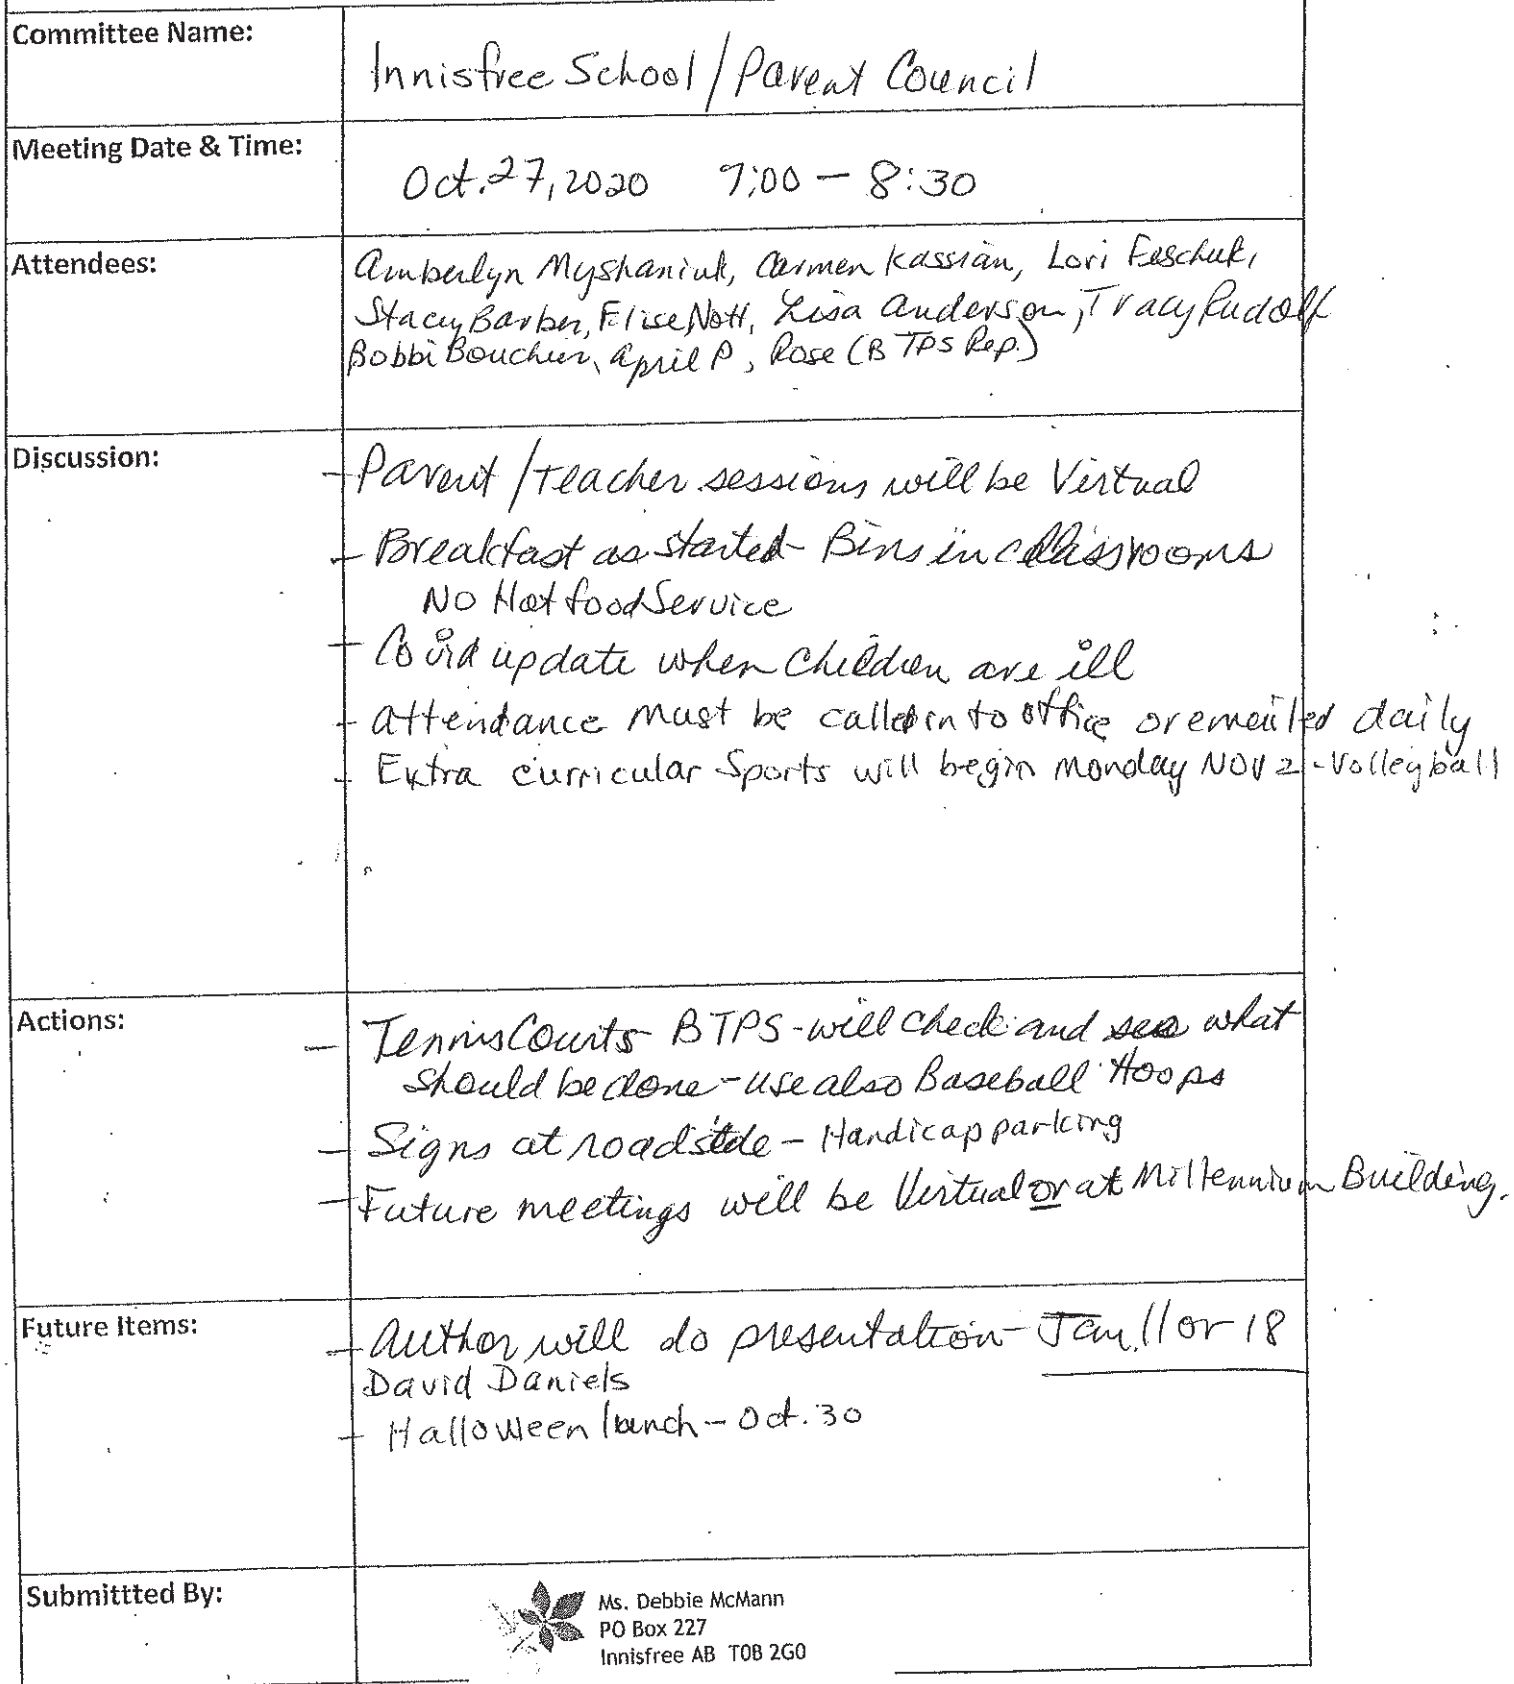 Committee Name:
Innisfree School / Parent Council
Meeting Date & Time:
Oct. 27, 2020 7:00 – 8:30
Attendees:
Amberlyn Myshaniuk, Carmen Kassian, Lori Feschuk,
Stacy Barber, Elise Nott, Lisa Anderson, Tracy Rudolf
Bobbi Boucher, April P, Rose (BTPS Rep.)
Discussion:
- Parent / Teacher sessions will be Virtual
- Breakfast as started - Bins in classrooms
No Hot food Service
- Covid update when children are ill
- attendance must be called in to office or emailed daily
- Extra curricular Sports will begin Monday Nov 2 - Volleyball
Actions:
- Tennis Courts - BTPS - will check and see what
should be done - use also Baseball Hoops
- Signs at roadside - Handicap parking
- Future meetings will be Virtual or at Millennium Building.
Future Items:
- Author will do presentation - Jan. 11 or 18
David Daniels
- Halloween lunch - Oct. 30
Submittted By:
Ms. Debbie McMann
PO Box 227
Innisfree AB T0B 2G0